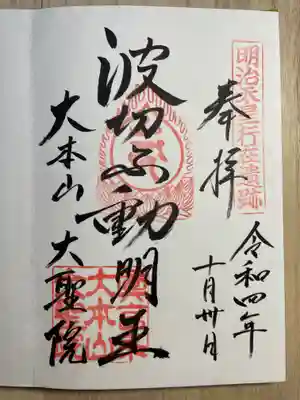 明治天皇行在遺跡
奉拝
令和四年
十月卅日
波切不動明王
大本山 大聖院
大本山